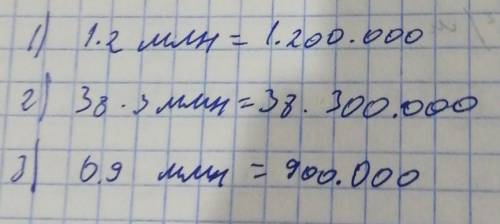 1) 1.2 млн = 1.200.000
2) 38.3 млн = 38.300.000
3) 0.9 млн = 900.000